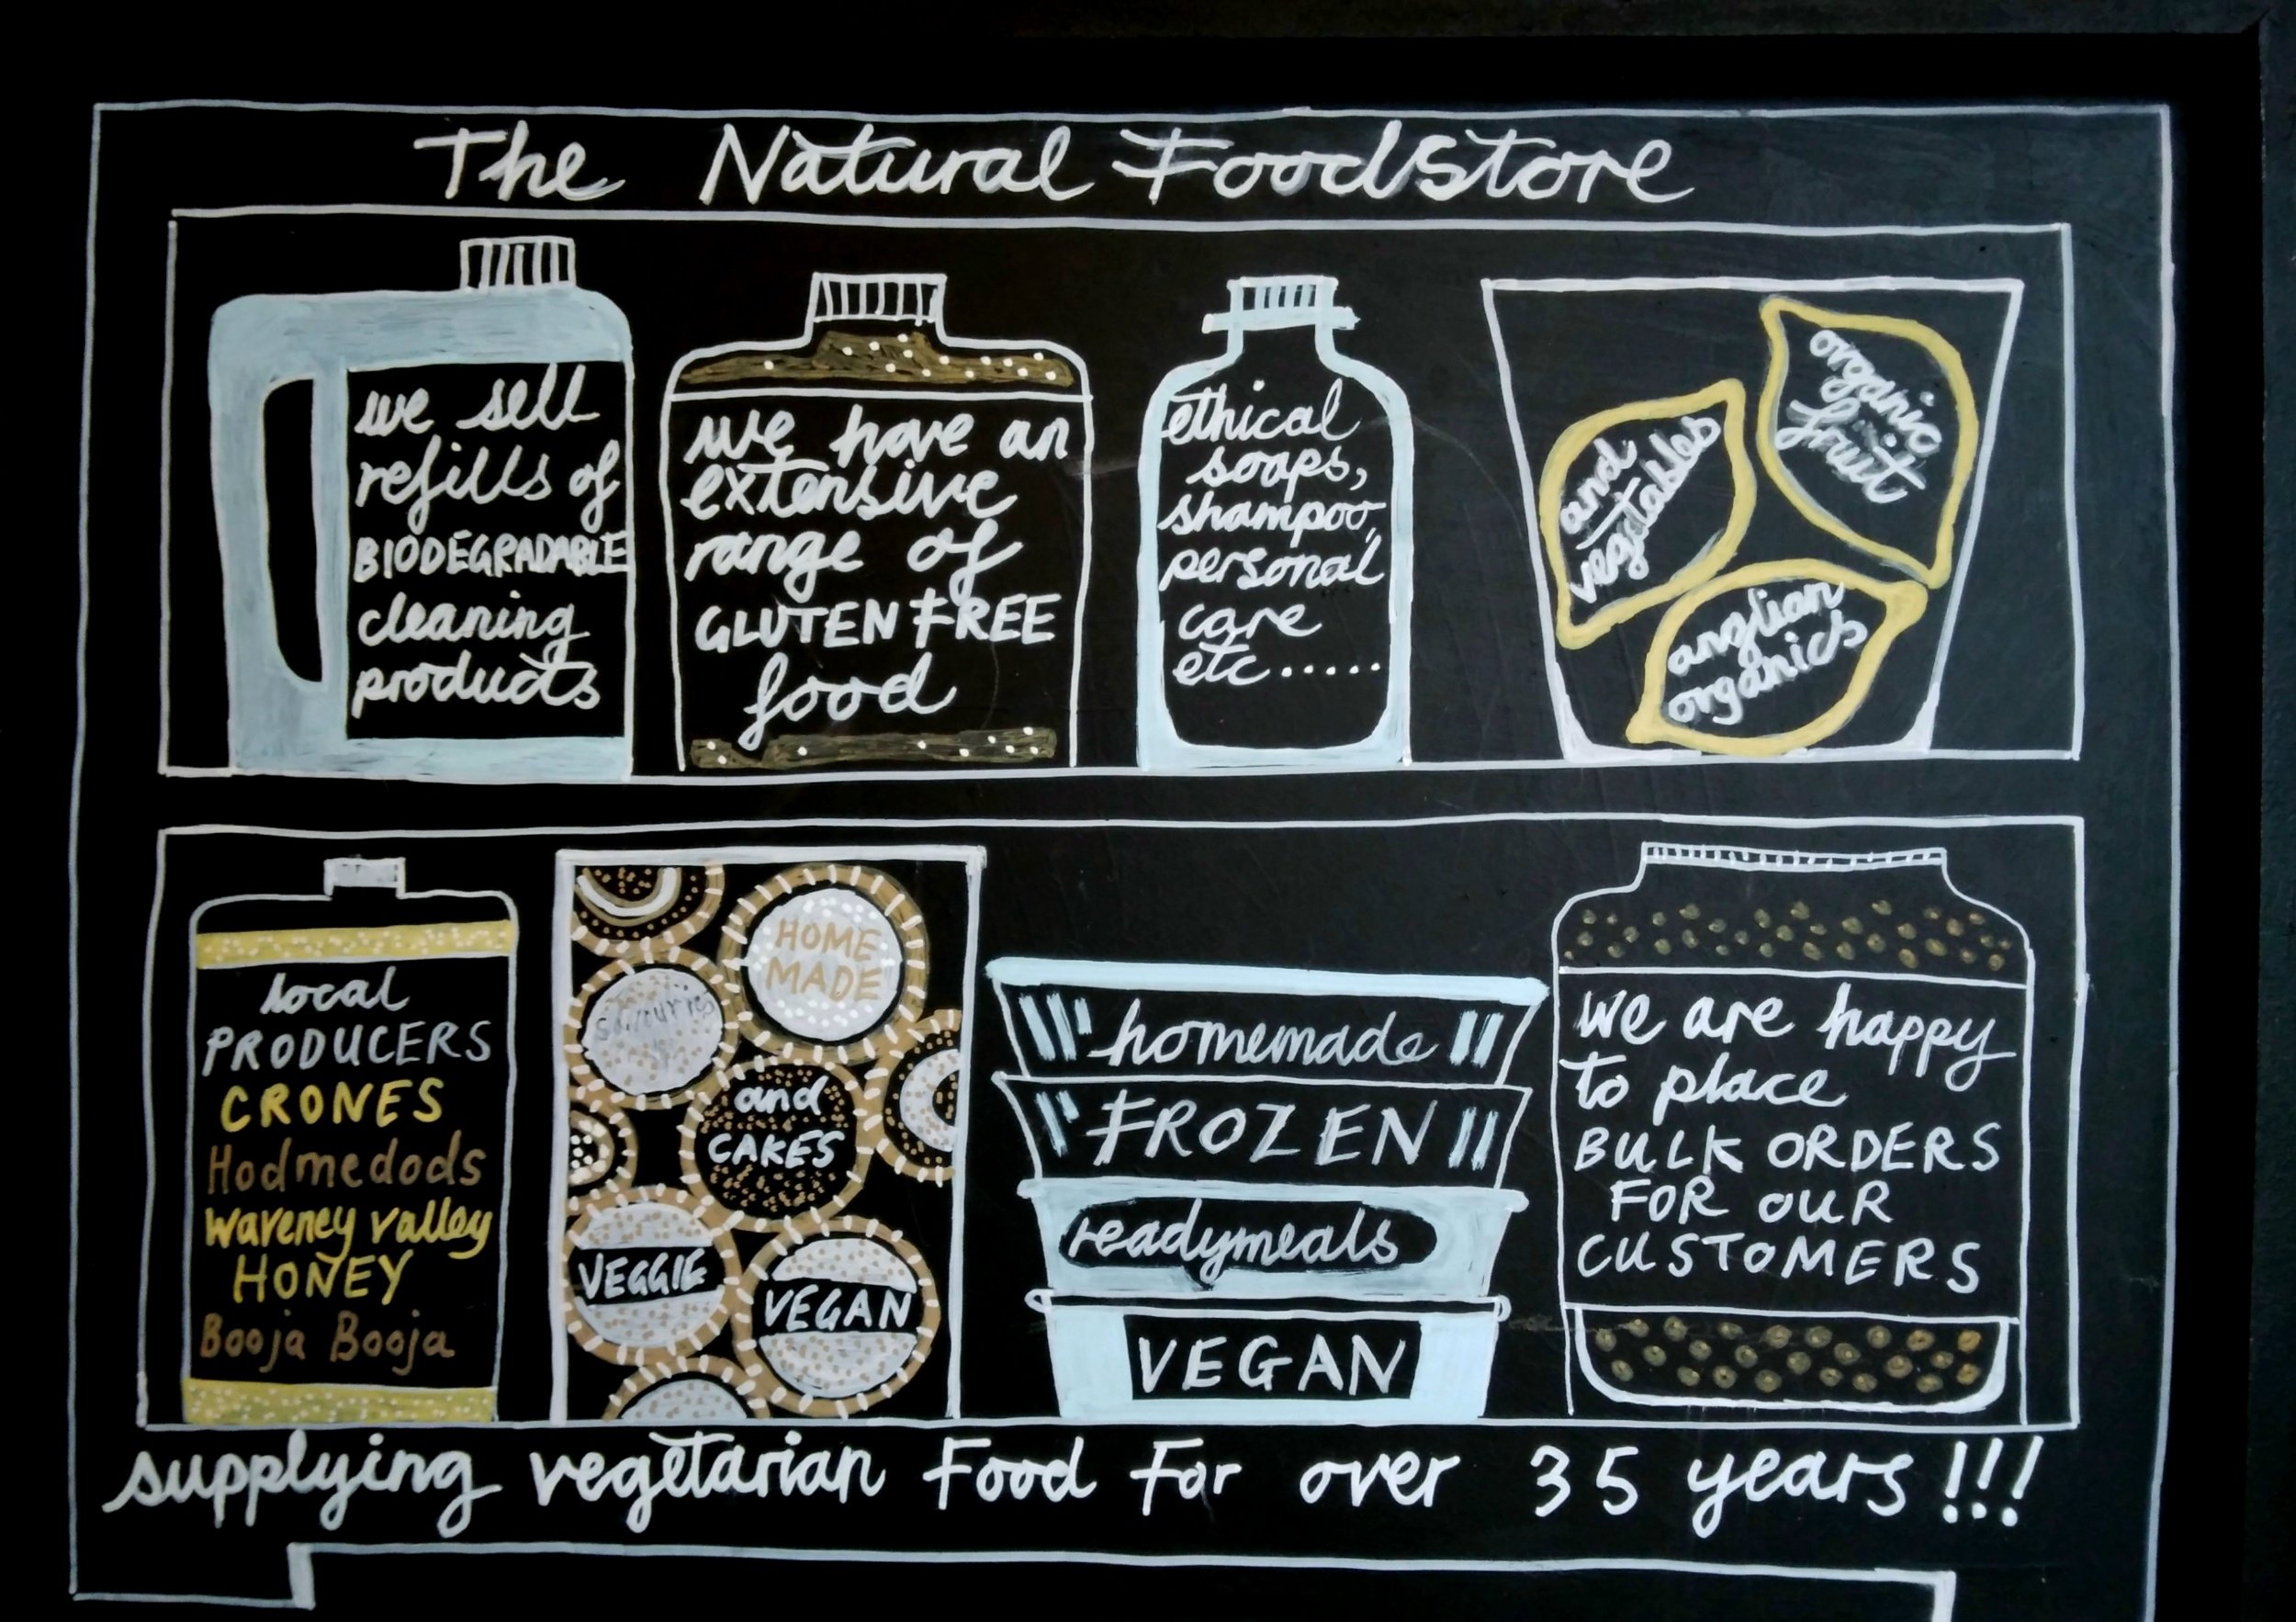 The Natural Foodstore
we sell
refills of
BIODEGRADABLE
cleaning
products
we have an
extensive
range of
GLUTEN FREE
food
ethical
soaps,
shampoo,
personal
care
etc.....
organic
fruit
and
vegetables
anglian
organics
local
PRODUCERS
CRONES
Hodmedods
Waveney valley
HONEY
Booja Booja
HOME
MADE
savouries
and
CAKES
VEGGIE
VEGAN
homemade
FROZEN
readymeals
VEGAN
we are happy
to place
BULK ORDERS
FOR OUR
CUSTOMERS
supplying vegetarian Food For over 35 years!!!